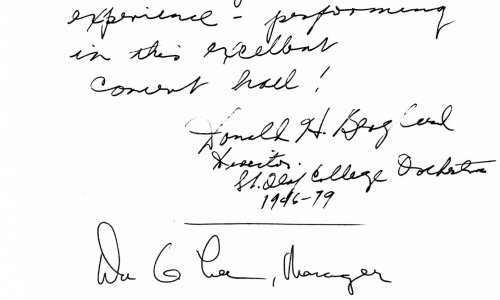 experience - performing
in this excellent
concert hall!
Donald H. Berglund
Director
St. Olaf College Orchestra
1946-79
Manager